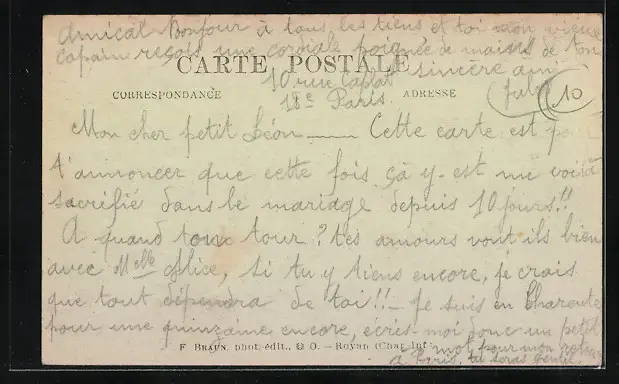 Amical Bonjour à tous les tiens et toi mon vieux
copain reçois une cordiale poignée de mains de ton
CARTE POSTALE
sincère ami
10 rue Caplat
18e Paris.
CORRESPONDANCE
ADRESSE
10
Mon cher petit Léon —— Cette carte est pour
t'annoncer que cette fois çà y-est me voilà
sacrifié dans le mariage depuis 10 jours!!
A quand ton tour? tes amours vont ils bien
avec Melle Alice, si tu y tiens encore, je crois
que tout dépendra de toi!! – Je suis en Charente
pour une quinzaine encore, écris-moi donc un petit
F. BRAUN, phot. édit., – Royan (Char.-Inf.
mot, pour mon retour
à Paris, tu seras gentil